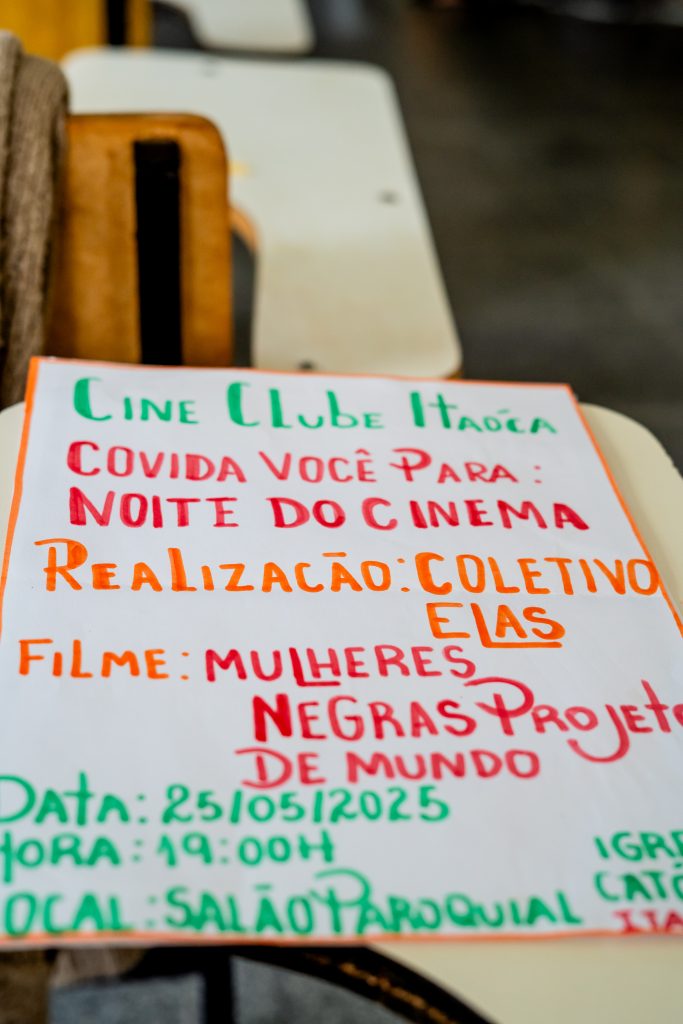 Cine Clube Itaóca
COVIDA VOCÊ PARA:
NOITE DO CINEMA
REALIZACÃO: COLETIVO
ELAS
FILME: MULHERES
NEGRAS PROJETO
DE MUNDO
DATA: 25/05/2025
HORA: 19:00H
LOCAL: SALÃO PAROQUIAL